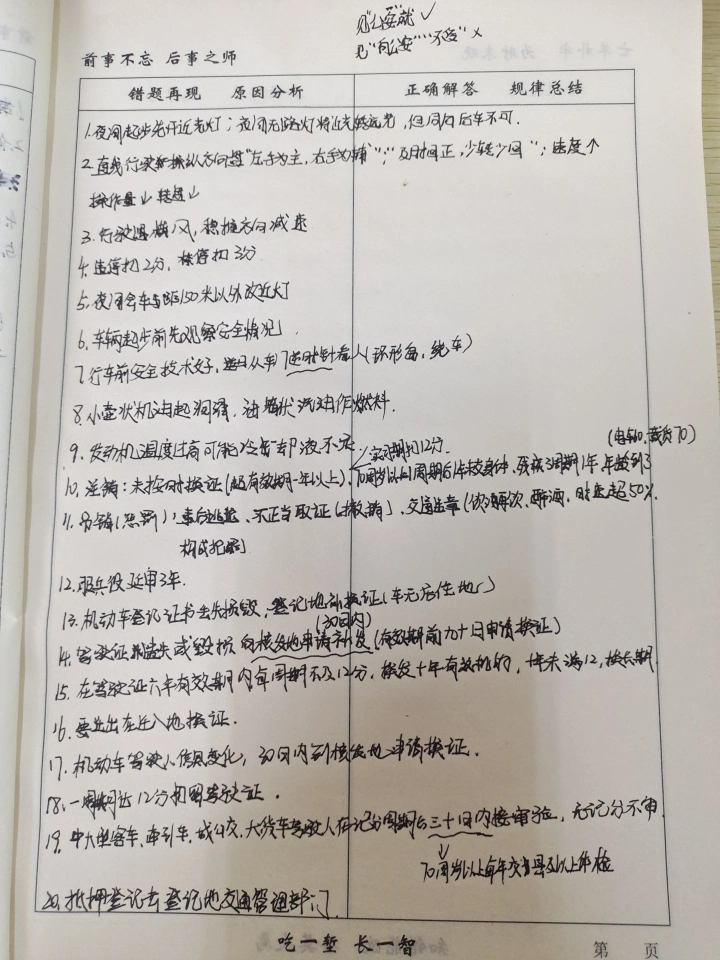 见"公安"就 ✓
见"向公安""不受" ×
前事不忘 后事之师
错题再现 原因分析 正确解答 规律总结
1.夜间起步先开近光灯；夜间无路灯将近光转远光，但同向后车不可.
2.直线行驶操纵方向盘"左手为主，右手为辅"；"及时回正，少转少回"；速度↑
操作量↓ 转速↓
3.行驶遇横风，稳握方向减速
4.违停扣2分，扣3分
5.夜间会车与距150米以外改近灯
6.车辆起步前先观察安全情况.
7.行车前安全技术好，从车门逆时针看人(环形岛，绕车)
8.小壶状机油起润滑，油箱状汽油作燃料.
9.发动机温度过高可能冷却液不足
实习期扣12分.
(电车10,载货70)
10.注销：未按时换证(超有效期一年以上)、70周岁以上周期后1年校身体，残疾3周期1年，年龄到了
11.吊销(惩罚)：事后逃逸、不正当取证(撤销)、交通出章(饮酒再次、醉酒、时速超50%.
构成犯罪)
12.服兵役延审3年.
13.机动车登记证书丢失损毁，登记地补换证(车无居住地)
(30日内)
14.驾驶证遗失或毁损向核发地申请补发(有效期前九十日申请换证)
15.在驾驶证六年有效期内每周期不及12分，换发十年有效机的，十年未满12，换长期.
16.要迁出在迁入地换证.
17.机动车驾驶人信息变化，30日内到核发地申请换证.
18.一周期达12分扣留驾驶证.
19.中大型客车、牵引车、城公交、大货车驾驶人在记分周期后三十日内接审验，无记分不审.
70周岁以上每年交县及以上体检
20.抵押登记去登记地交通管理部门.
吃一堑 长一智
第 页